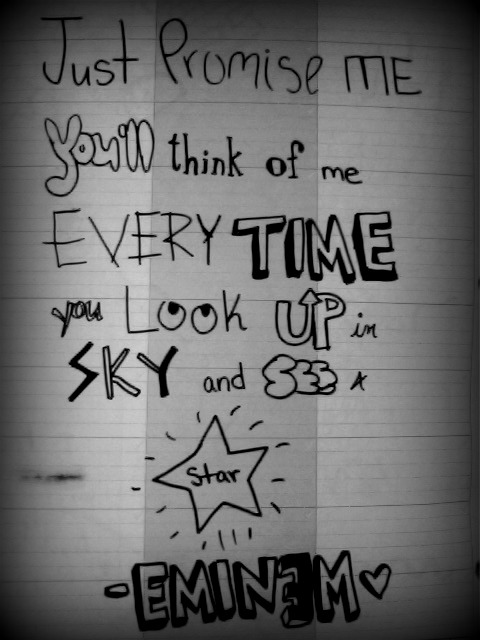 Just Promise ME
You'll think of me
EVERY TIME
you Look UP in
SKY and see a
star
-EMINEM♡